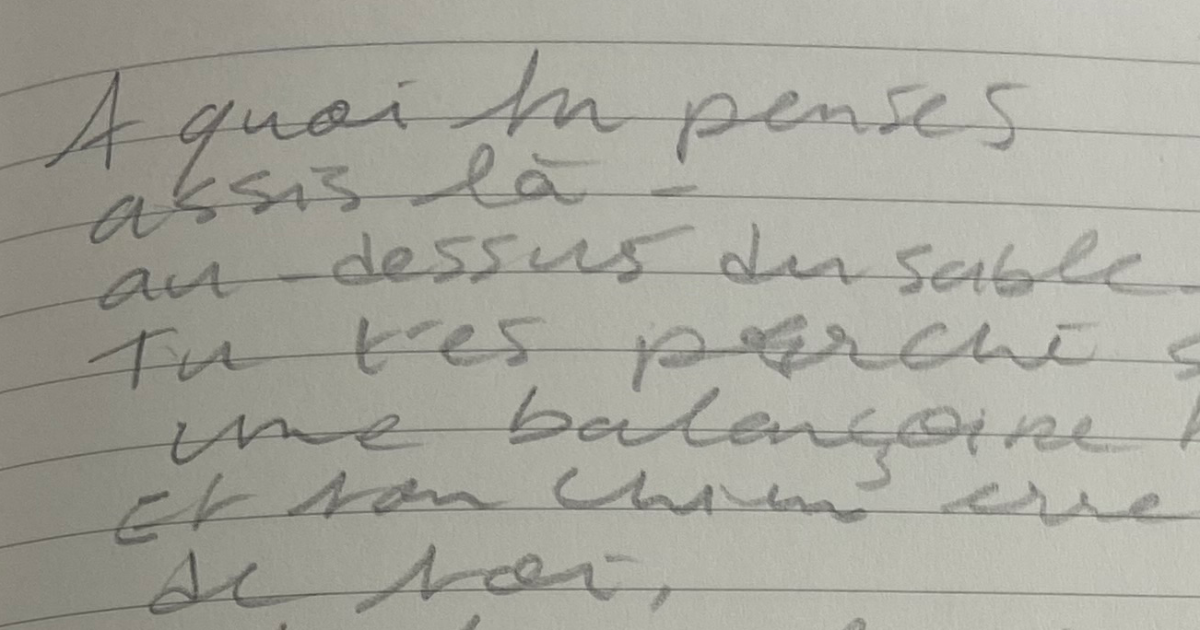 A quoi tu penses
assis là -
au-dessus du sable
Tu t'es perché
une balançoire
Et ton chien erre
de toi,